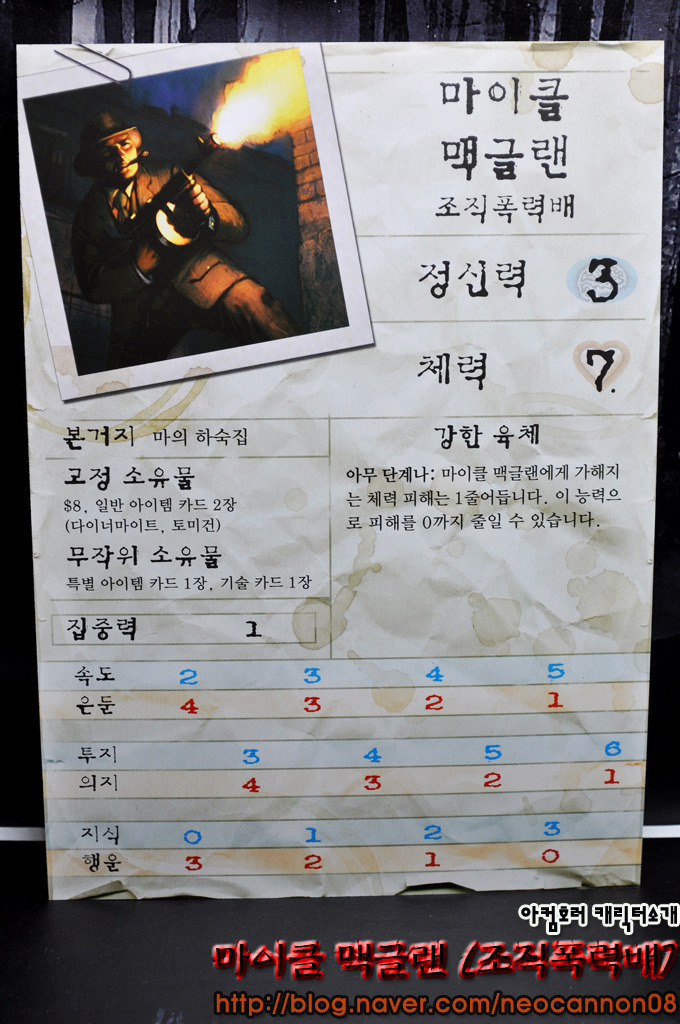 마이클
맥글랜
조직폭력배
정신력 3
체력 7
본거지 마의 하숙집
고정 소유물
$8, 일반 아이템 카드 2장
(다이너마이트, 토미건)
무작위 소유물
특별 아이템 카드 1장, 기술 카드 1장
집중력 1
강한 육체
아무 단계나: 마이클 맥글랜에게 가해지
는 체력 피해는 1줄어듭니다. 이 능력으
로 피해를 0까지 줄일 수 있습니다.
속도 2 3 4 5
은둔 4 3 2 1
투지 3 4 5 6
의지 4 3 2 1
지식 0 1 2 3
행운 3 2 1 0
아컴호러 캐릭터소개
마이클 맥글랜 (조직폭력배)
http://blog.naver.com/neocannon08